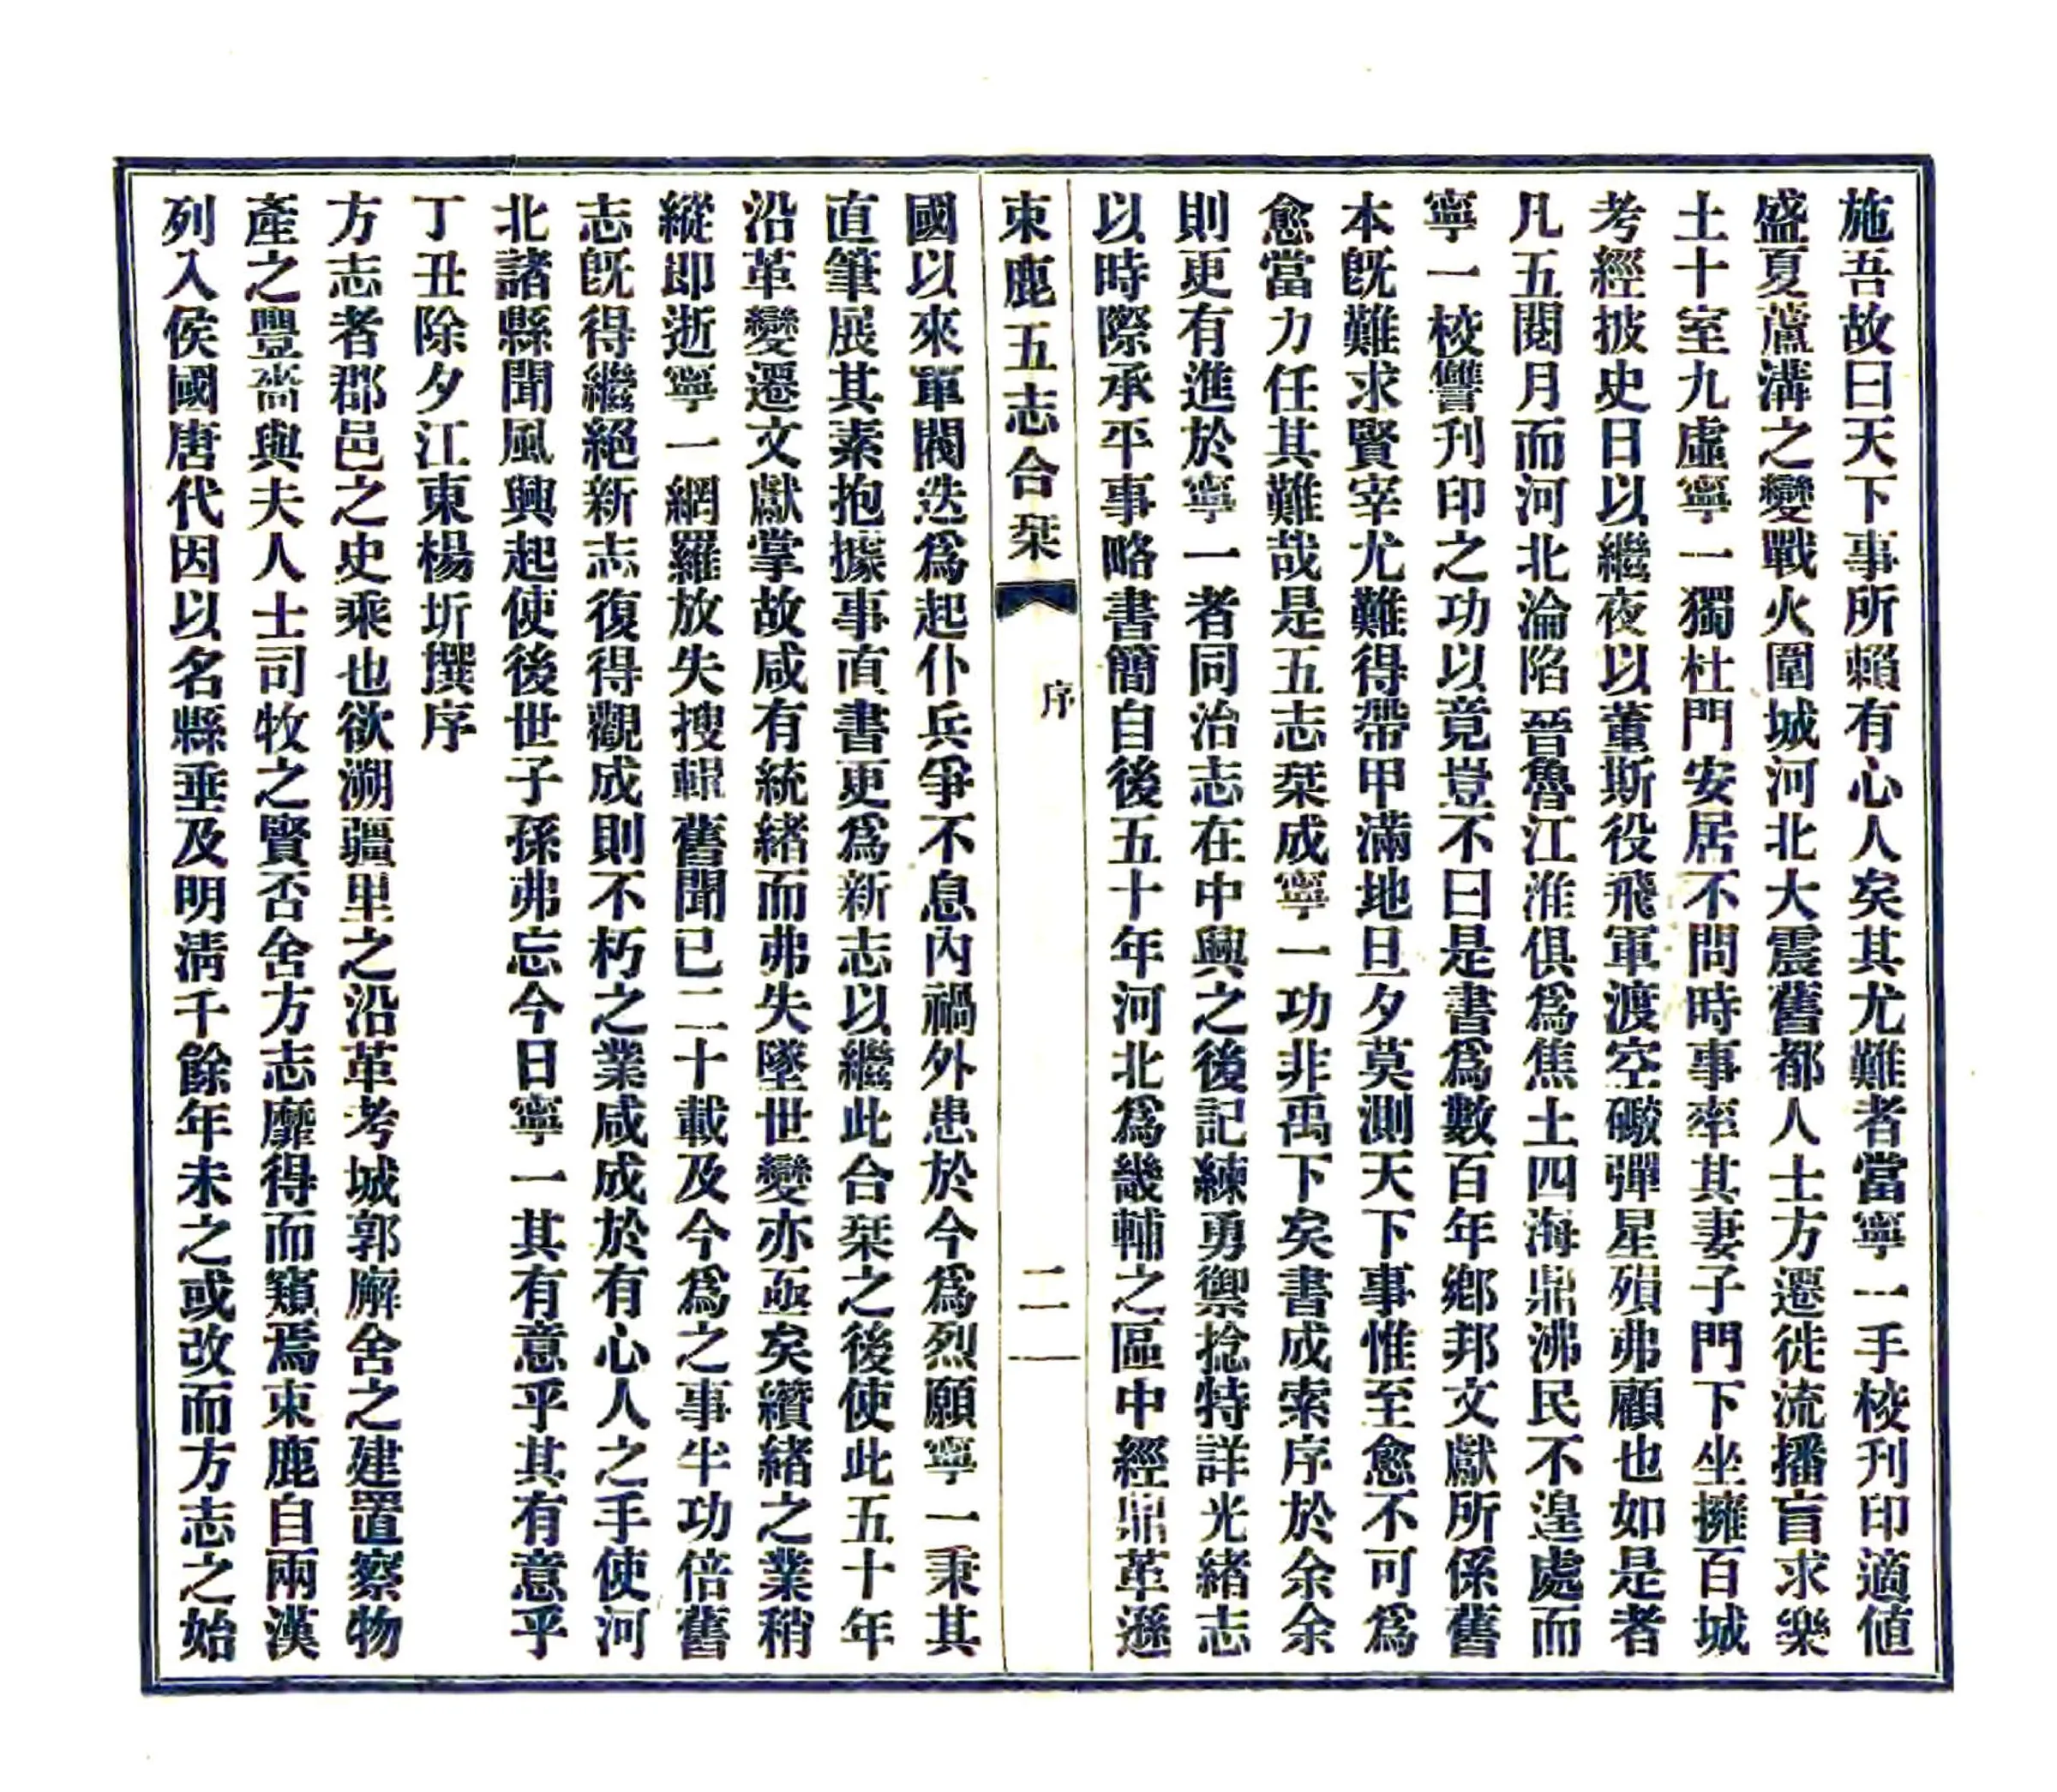 施吾故曰天下事所賴有心人矣其尤難者當寧一手校刋印適值
盛夏蘆溝之變戰火圍城河北大震舊都人士方遷徙流播盲求樂
土十室九虛寧一獨杜門安居不問時事率其妻子門下坐擁百城
考經披史日以繼夜以董斯役飛軍渡空礮彈星殞弗顧也如是者
凡五閱月而河北淪陷晉魯江淮俱爲焦土四海鼎沸民不遑處而
寧一校讐刋印之功以竟豈不曰是書爲數百年鄉邦文獻所係舊
本旣難求賢宰尤難得帶甲滿地旦夕莫測天下事惟至愈不可爲
愈當力任其難哉是五志栞成寧一功非禹下矣書成索序於余余
則更有進於寧一者同治志在中興之後記練勇禦捻特詳光緒志
以時際承平事略書簡自後五十年河北爲畿輔之區中經鼎革遜
束鹿五志合栞
序
二
國以來軍閥迭爲起仆兵爭不息內禍外患於今爲烈願寧一秉其
直筆展其素抱據事直書更爲新志以繼此合栞之後使此五十年
沿革變遷文獻掌故咸有統緒而弗失墜世變亦亟矣纘緒之業稍
縱即逝寧一網羅放失搜輯舊聞已二十載及今爲之事半功倍舊
志旣得繼絕新志復得觀成則不朽之業咸成於有心人之手使河
北諸縣聞風興起使後世子孫弗忘今日寧一其有意乎其有意乎
丁丑除夕江東楊圻撰序
方志者郡邑之史乘也欲溯疆里之沿革考城郭廨舍之建置察物
產之豐嗇與夫人士司牧之賢否舍方志靡得而窺焉束鹿自兩漢
列入侯國唐代因以名縣垂及明淸千餘年未之或改而方志之始